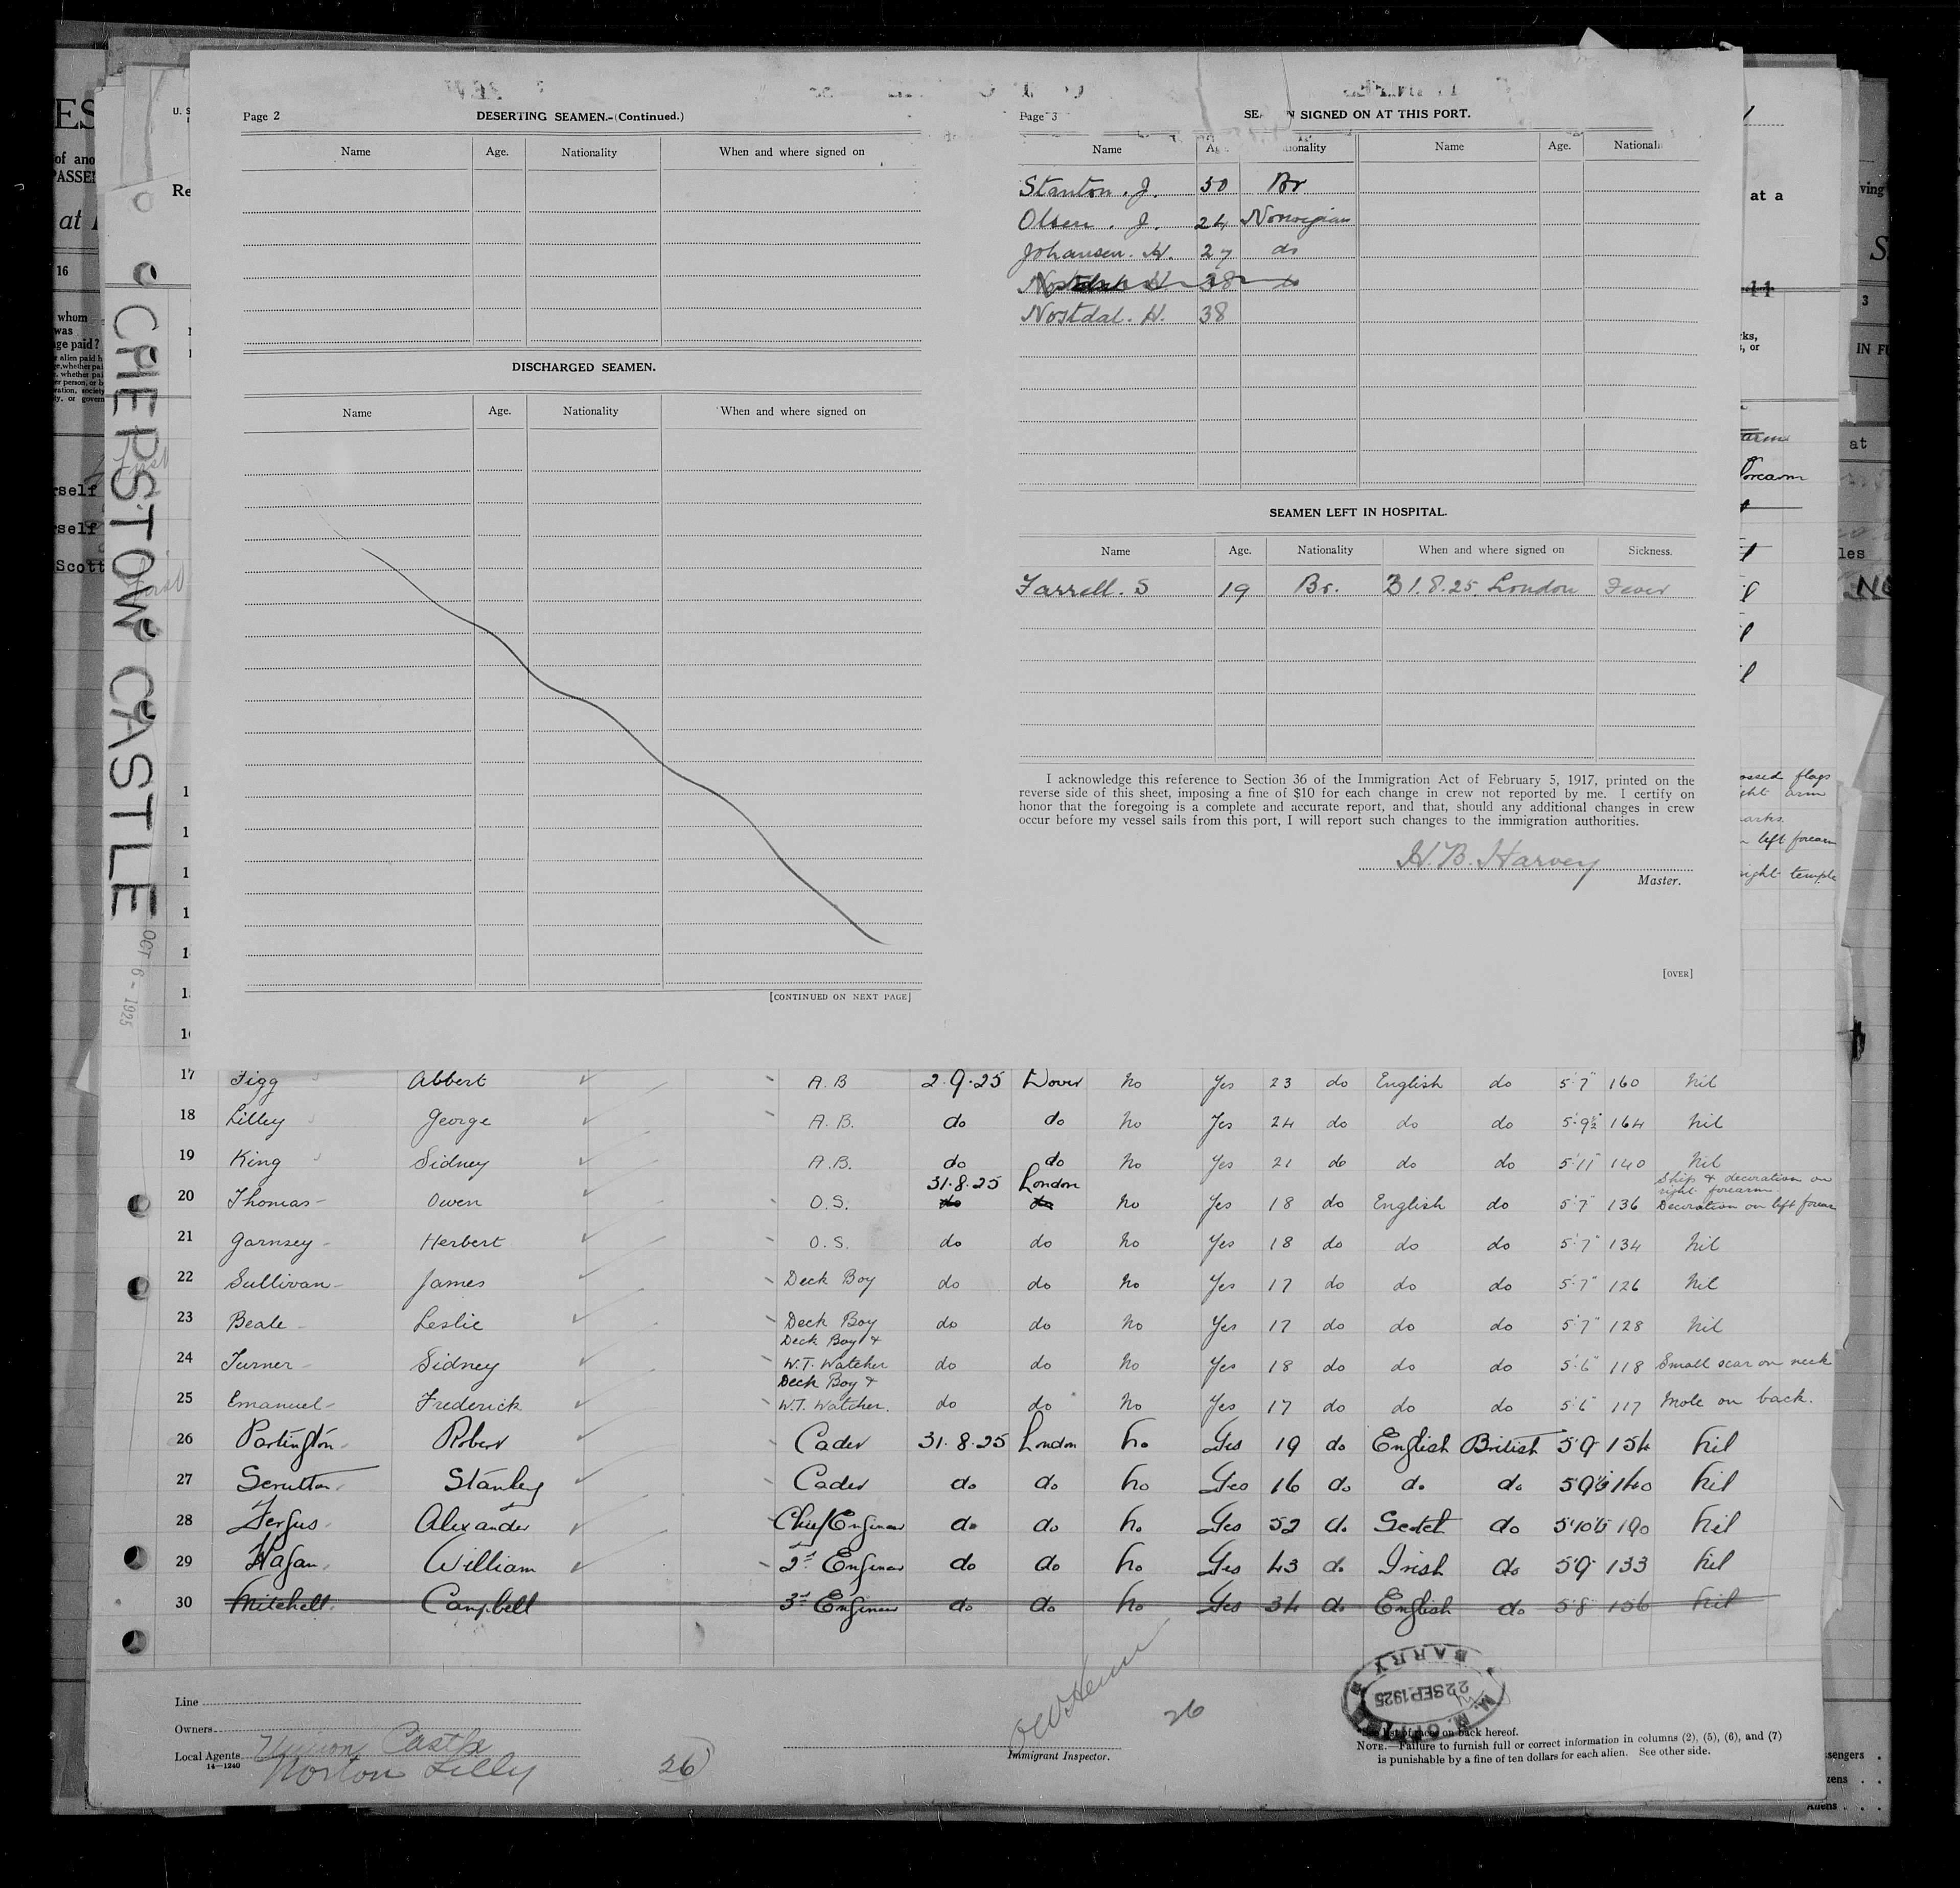 Page 2 DESERTING SEAMEN.-(Continued.)
Name Age. Nationality When and where signed on
DISCHARGED SEAMEN.
Name Age. Nationality When and where signed on
[CONTINUED ON NEXT PAGE]
Page 3 SIGNED ON AT THIS PORT.
Name Name Age.
Stanton. J. 50 Br
Olsen. J. 24 Norwegian
Johansen. H. 27 do
Nostdal. H. 38
SEAMEN LEFT IN HOSPITAL.
Name Age. Nationality When and where signed on Sickness.
Farrell. S 19 Br. 31.8.25. London Fever
I acknowledge this reference to Section 36 of the Immigration Act of February 5, 1917, printed on the
reverse side of this sheet, imposing a fine of $10 for each change in crew not reported by me. I certify on
honor that the foregoing is a complete and accurate report, and that, should any additional changes in crew
occur before my vessel sails from this port, I will report such changes to the immigration authorities.
H. B. Harvey
Master.
[OVER]
CHEPSTOW CASTLE
OCT 6 - 1925
17 Figg Abbert A.B 2.9.25 Dover No Yes 23 do English do 5'7" 160 Nil
18 Lilley George A.B. do do No Yes 24 do do do 5'9½" 164 Nil
19 King Sidney A.B. do do No Yes 21 do do do 5'11" 140 Nil
31.8.25 London Ship & decoration on
right forearm
20 Thomas Owen O.S. do do No Yes 18 do English do 5'7" 136 Decoration on left forearm
21 Garnsey Herbert O.S. do do No Yes 18 do do do 5'7" 134 Nil
22 Sullivan James Deck Boy do do No Yes 17 do do do 5'7" 126 Nil
23 Beale Leslie Deck Boy do do No Yes 17 do do do 5'7" 128 Nil
Deck Boy &
24 Turner Sidney W.T. Watcher do do No Yes 18 do do do 5'6" 118 Small scar on neck
Deck Boy &
25 Emanuel Frederick W.T. Watcher. do do No Yes 17 do do do 5'6" 117 Mole on back.
26 Partington Robert Cadet 31.8.25 London No Yes 19 do English British 5'9 154 Nil
27 Scrutton Stanley Cadet do do No Yes 16 do do do 140 Nil
28 Fergus Alexander Chief Engineer do do No Yes 52 do Scotch do 190 Nil
29 Hagan William 2nd Engineer do do No Yes 43 do Irish do 5'9 133 Nil
30 Mitchell Campbell 3rd Engineer do do No Yes 34 do English do 5'8 156 Nil
Line
Owners Union Castle
Local Agents Norton Lilly
14—1240
26
26
Immigrant Inspector.
BARRY
22 SEP 1925
See list of races on back hereof.
NOTE.—Failure to furnish full or correct information in columns (2), (5), (6), and (7)
is punishable by a fine of ten dollars for each alien. See other side.